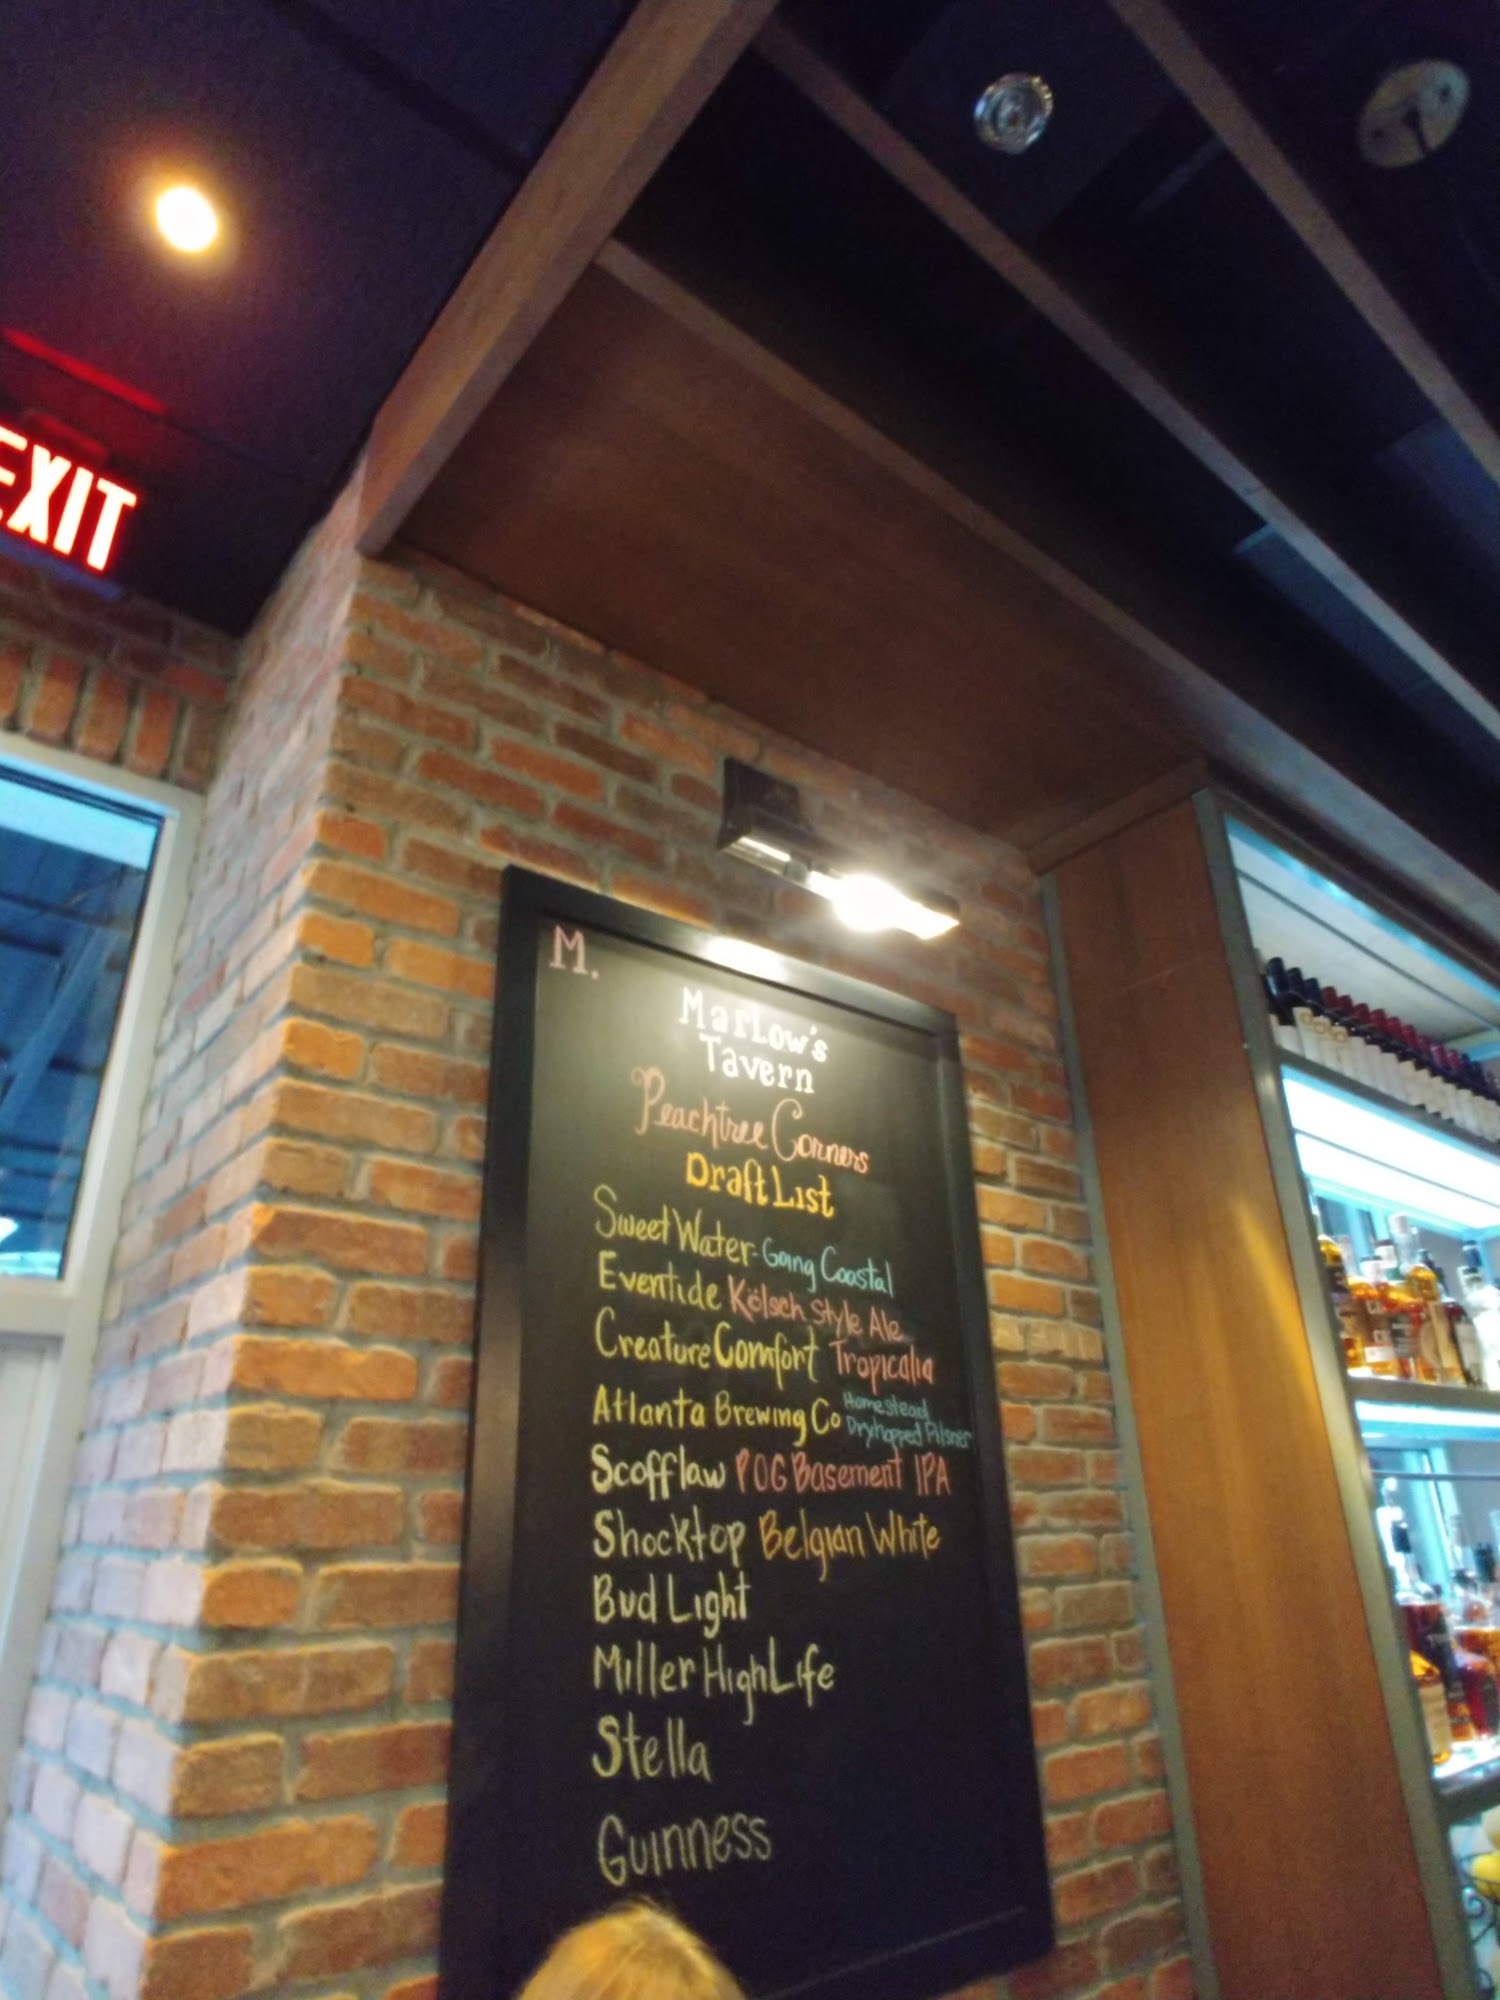 EXIT
M.
Marlow's
Tavern
Peachtree Corners
Draft List
SweetWater - Going Coastal
Eventide Kölsch Style Ale
Creature Comfort Tropicalia
Atlanta Brewing Co Homestead
Dryhopped Pilsner
Scofflaw POG Basement IPA
Shocktop Belgian White
Bud Light
Miller High Life
Stella
Guinness